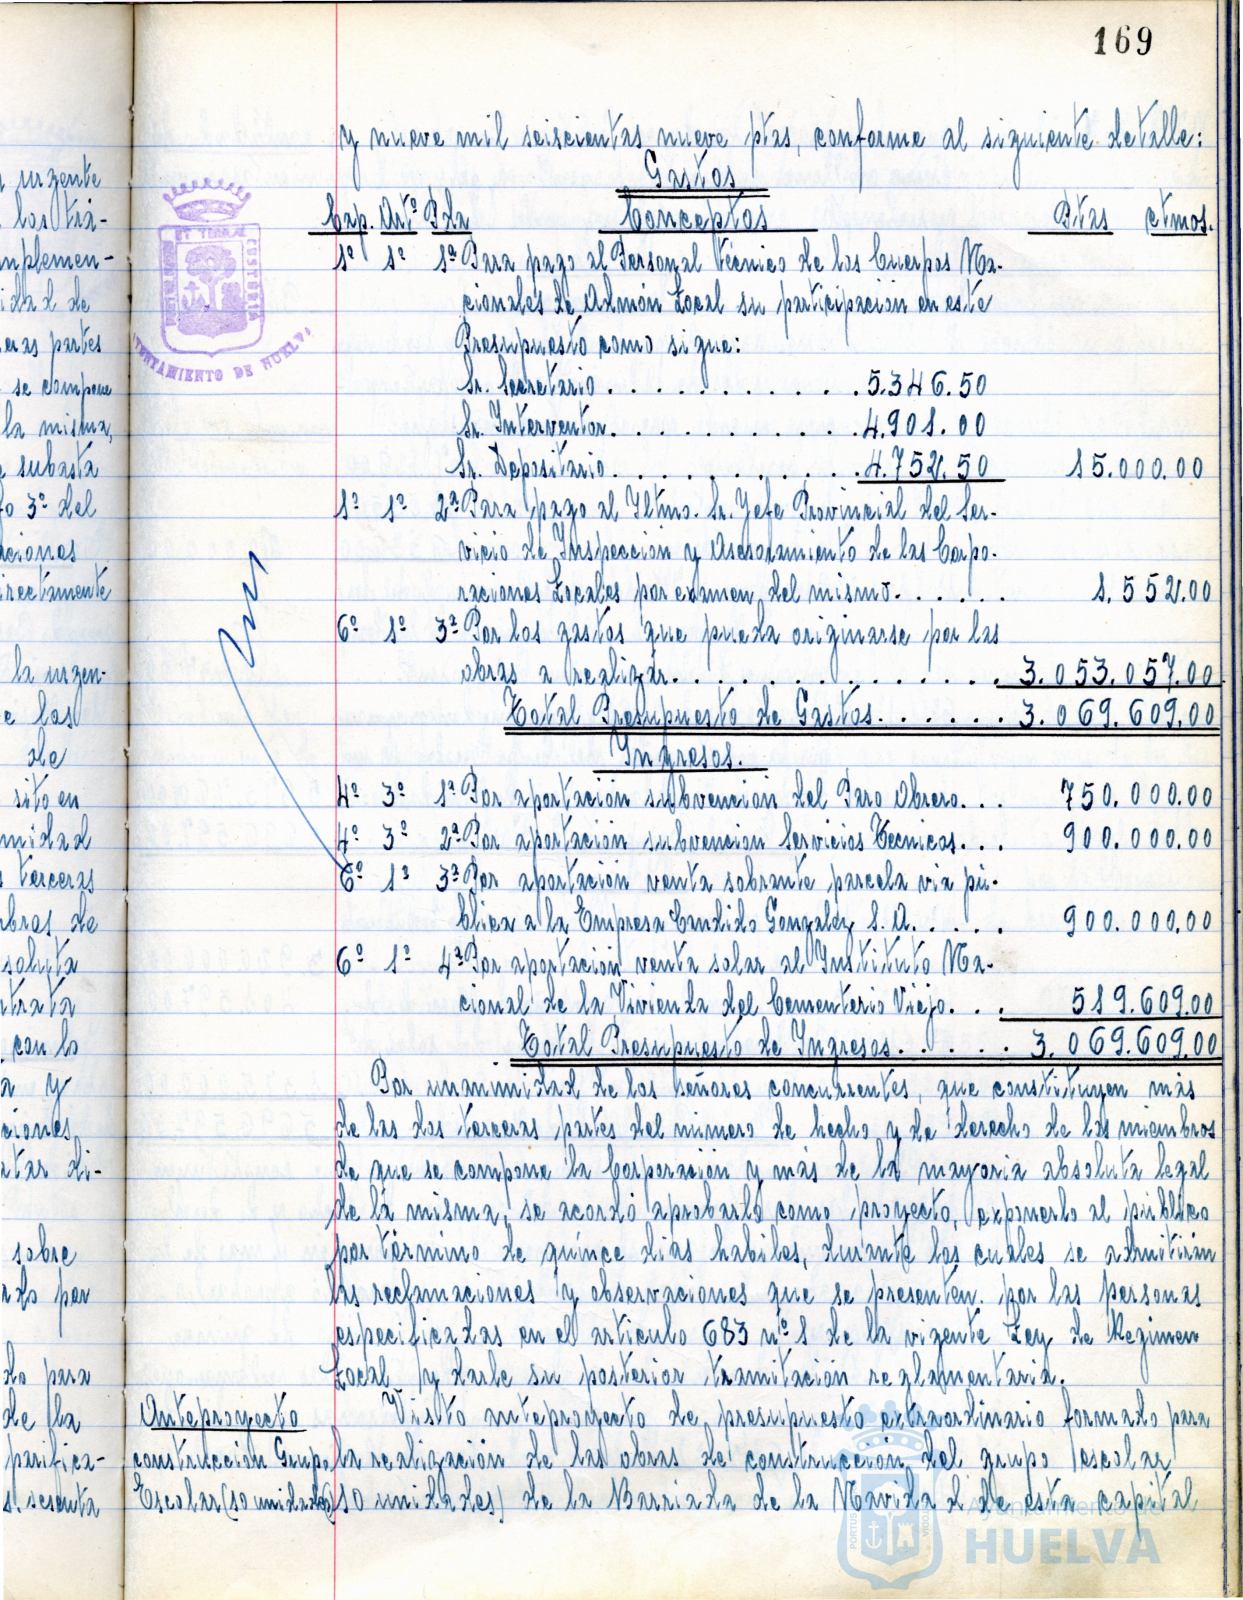 169
y nueve mil seiscientas nueve ptas, conforme al siguiente detalle:
Gastos
Cap. Artº Pda Conceptos Ptas ctmos.
1º 1º 1ª Para pago al Personal Técnico de los Cuerpos Na-
cionales de Admón Local su participación en este
Presupuesto como sigue:
Sr. Secretario . . . . . . . . . . . 5.346.50
Sr. Interventor. . . . . . . . . . . 4.901.00
Sr. Depositario . . . . . . . . . . . 4.752.50 15.000.00
1º 1º 2ª Para pago al Iltmo. Sr. Jefe Provincial del Ser-
vicio de Inspección y Asesoramiento de las Corpo-
raciones Locales por examen del mismo. . . . . . 1.552.00
6º 1º 3ª Por los gastos que pueda originarse por las
obras a realizar. . . . . . . . . . . . . 3.053.057.00
Total Presupuesto de Gastos. . . . . . 3.069.609.00
Ingresos.
4º 3º 1ª Por aportación subvención del Paro Obrero. . . 750.000.00
4º 3º 2ª Por aportación subvención Servicios Tecnicos. . . 900.000.00
6º 1º 3ª Por aportación venta sobrante parcela via pú-
blica a la Empresa Candido González S.A. . . . . 900.000.00
6º 1º 4ª Por aportación venta solar al Instituto Na-
cional de la Vivienda del Cementerio Viejo. . . . 519.609.00
Total Presupuesto de Ingresos. . . . . . 3.069.609.00
Por unanimidad de los señores concurrentes, que constituyen más
de las dos terceras partes del número de hecho y de derecho de los miembros
de que se compone la Corporación y más de la mayoria absoluta legal
de la misma, se acordó aprobarlo como proyecto, exponerlo al público
por término de quince dias habiles, durante los cuales se admitirán
las reclamaciones y observaciones que se presenten. por las personas
especificadas en el articulo 683 nº 1 de la vigente Ley de Regimen
Local y darle su posterior tramitación reglamentaria.
Anteproyecto
construcción Grupo
Escolar (10 unidades)
Visto anteproyecto de presupuesto extraordinario formado para
la realización de las obras de construcción del grupo escolar
(10 unidades) de la Barriada de la Navidad de esta capital
urgente
los trá-
mplemen-
idad de
eras partes
se compone
la misma,
subasta
o 3º del
aciones
irectamente
la urgen-
e los
de
sito en
midad
terceras
bros de
soluta
ntrata
con lo
a y
ciones
atar di-
sobre
do por
do para
de la
parifica-
s. sesenta
ET TERRAE CUSTODIA
AYUNTAMIENTO DE HUELVA
Ayuntamiento de
HUELVA